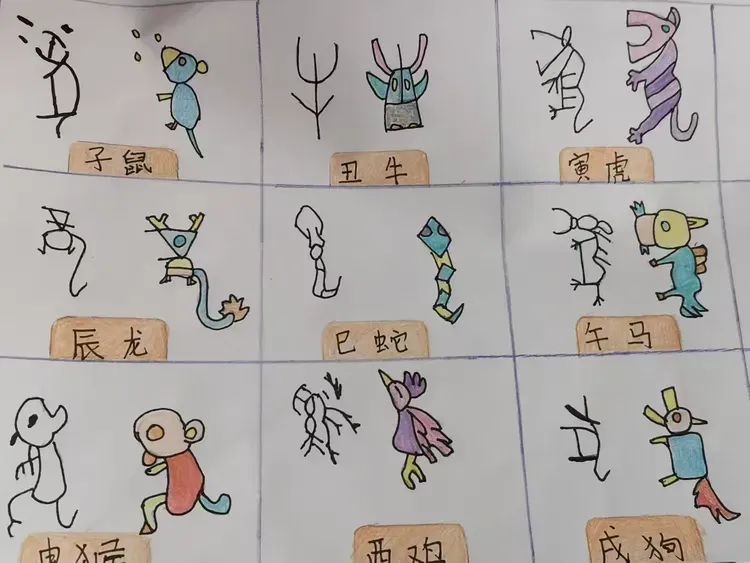 子鼠
丑牛
寅虎
辰龙
巳蛇
午马
申猴
酉鸡
戌狗